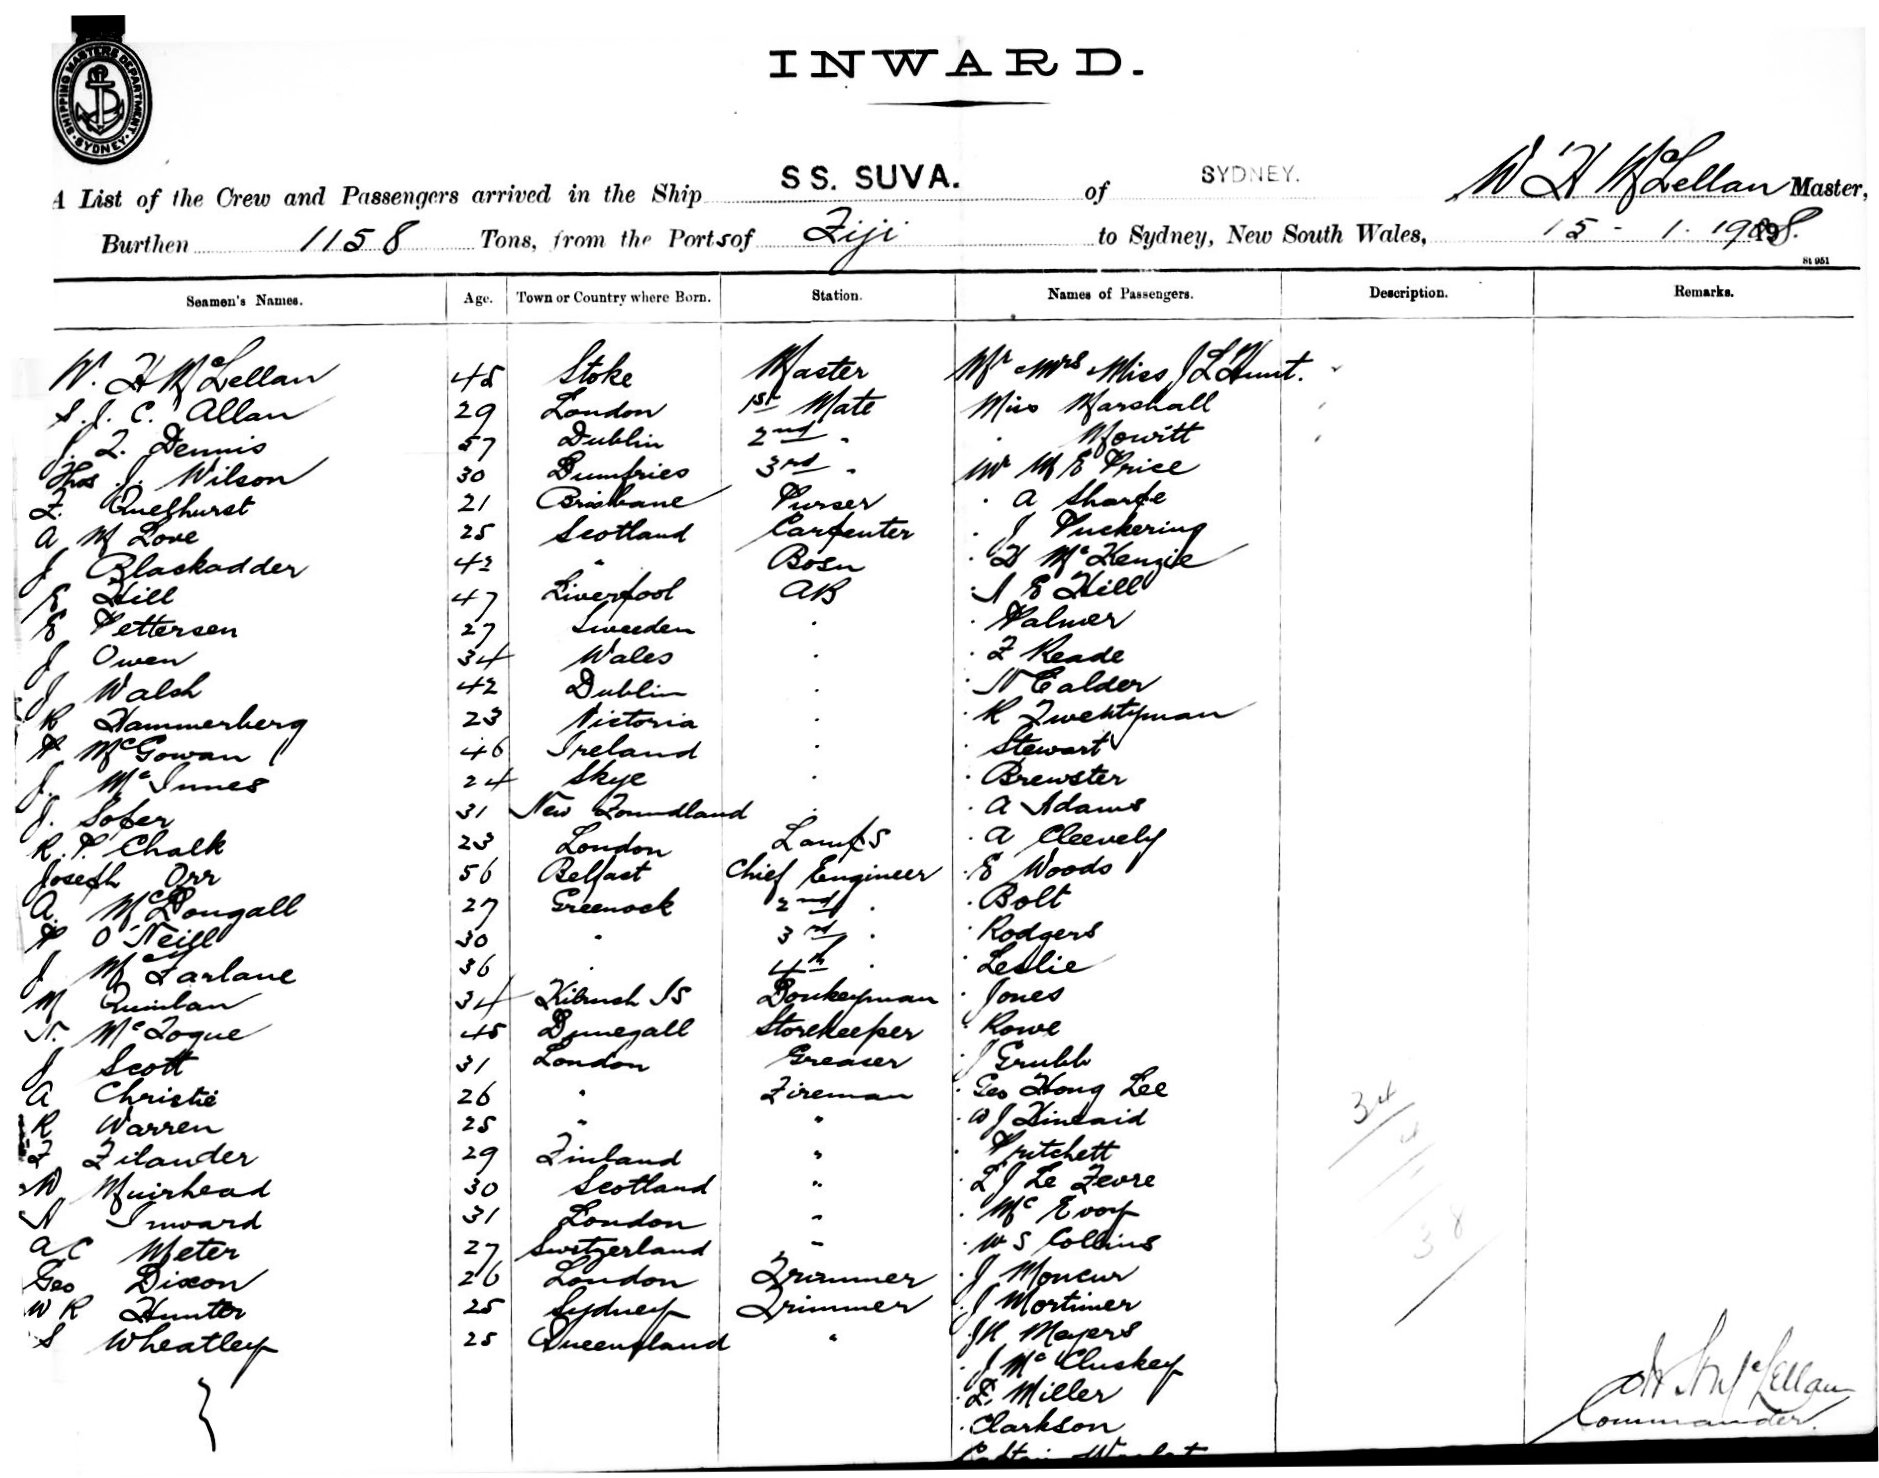 SHIPPING MASTERS DEPARTMENT SYDNEY
INWARD.
A List of the Crew and Passengers arrived in the Ship SS. SUVA. of SYDNEY. W H McLellan Master,
Burthen 1158 Tons, from the Ports of Fiji to Sydney, New South Wales, 15 - 1. 1908.
St 951
Seamen's Names. Age. Town or Country where Born. Station. Names of Passengers. Description. Remarks.
W. H McLellan 45 Stoke Master Mr Mrs Miss J L Hunt.
S. J. C. Allan 29 London 1st Mate Miss Marshall
J. F. Dennis 57 Dublin 2nd " " Mowitt
Thos. J. Wilson 30 Dumfries 3rd " Mr M E Price
F. Quelhurst 21 Brisbane Purser " A Sharpe
A M Love 25 Scotland Carpenter " J Puckering
J Blackadder 42 " Bosn " H McKenzie
E Hill 47 Liverpool AB " A E Hill
E Pettersen 27 Sweeden " " Palmer
J Owen 34 Wales " " F Reade
J Walsh 42 Dublin " " N Ealder
R Hammerberg 23 Victoria " " R Twentyman
P McGowan 46 Ireland " " Stewart
J. McInnes 24 Skye " " Brewster
J. Soper 31 New Foundland " " A Adams
R. P. Chalk 23 London Lamps " A Cleevely
Joseph Orr 56 Belfast Chief Engineer " E Woods
A. McDougall 27 Greenock 2nd " " Bolt
P O'Neill 30 " 3rd " " Rodgers
J McFarlane 36 " 4th " " Leslie
M Quinlan 34 Kilrush Is Donkeyman " Jones
N. McFogue 45 Dunegall Storekeeper " Rowe
J Scott 31 London Greaser " J Grubb
A Christie 26 " Fireman " Geo Hong Lee
R Warren 25 " " " W J Kincaid
F Filander 29 Finland " " Pritchett
W Muirhead 30 Scotland " " L J Le Fevre
A Inward 31 London " " McEvoy
A C Meter 27 Switzerland " " W S Collins
Geo Dixon 26 London Trimmer " J Moncur
W R Hunter 25 Sydney Trimmer " J Mortimer
S Wheatley 25 Queensland " " J R Meyers
" J McCluskey
" L. Miller
" Clarkson
Captain
34
4
38
W H McLellan
Commander.